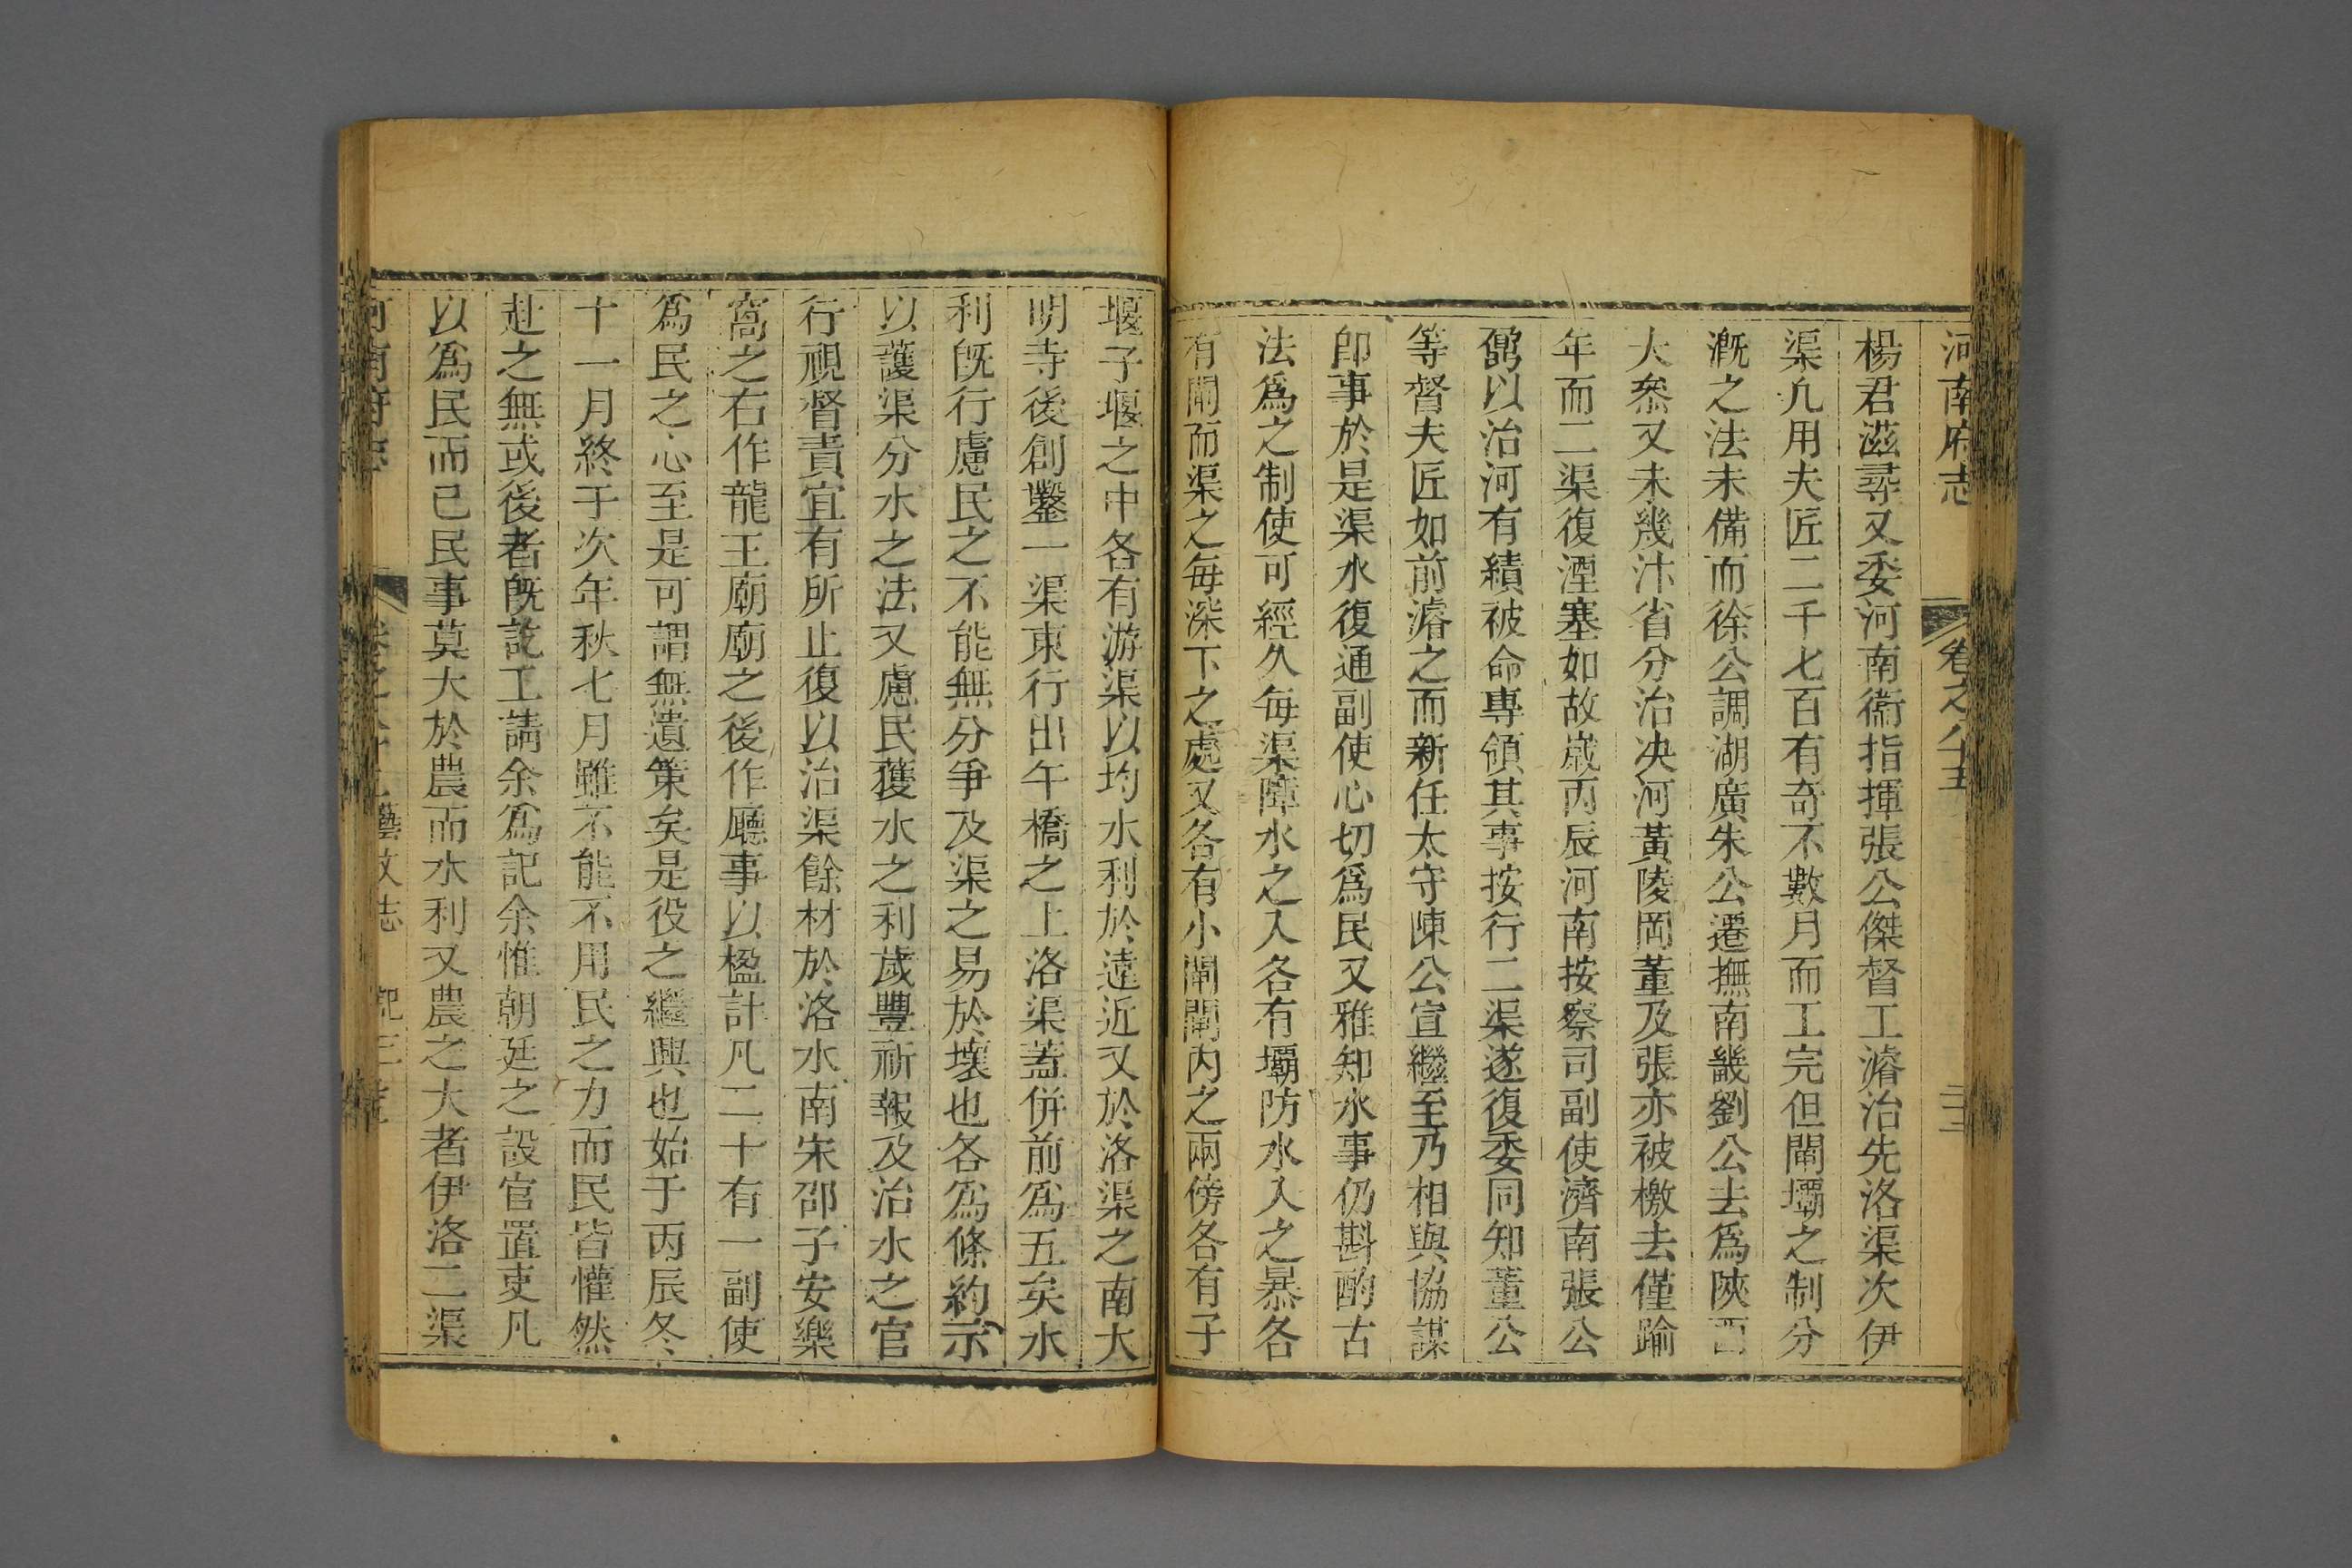 河南府志
卷之八十五
楊君滋尋又委河南衞指揮張公傑督工濬治先洛渠次伊
渠凡用夫匠二千七百有奇不數月而工完但閘壩之制分
漑之法未備而徐公調湖廣朱公遷撫南畿劉公去爲陝西
大叅又未幾汴省分治决河黃陵岡董及張亦被檄去僅踰
年而二渠復湮塞如故嵗丙辰河南按察司副使濟南張公
鼐以治河有績被命專領其事按行二渠遂復委同知董公
等督夫匠如前濬之而新任太守陳公宣繼至乃相與協謀
卽事於是渠水復通副使心切爲民又雅知水事仍斟酌古
法爲之制使可經久每渠障水之入各有壩防水入之暴各
有閘而渠之每深下之處又各有小閘閘内之兩傍各有子
堰子堰之中各有游渠以均水利於遠近又於洛渠之南大
明寺後創鑿一渠東行出午橋之上洛渠葢併前爲五矣水
利旣行慮民之不能無分爭及渠之易於壞也各爲條約示
以護渠分水之法又慮民獲水之利嵗豐祈報及治水之官
行視督責宜有所止復以治渠餘材於洛水南宋邵子安樂
窩之右作龍王廟廟之後作廳事以楹計凡二十有一副使
爲民之心至是可謂無遺策矣是役之繼興也始于丙辰冬
十一月終于次年秋七月雖不能不用民之力而民皆懽然
赴之無或後者旣訖工請余爲記余惟朝廷之設官置吏凡
以爲民而已民事莫大於農而水利又農之大者伊洛二渠
河南府志
藝文志